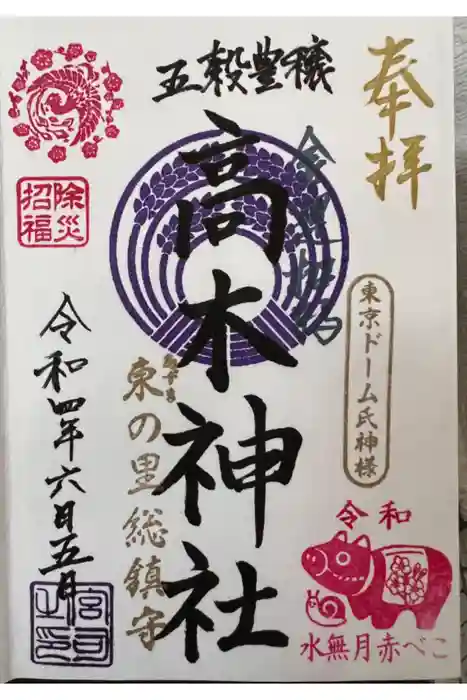 奉拝
五穀豊穣
高木神社
東京ドーム氏神様
あずま
東の里総鎮守
除災
招福
令和四年六月五日
宮司之印
令和
水無月赤べこ